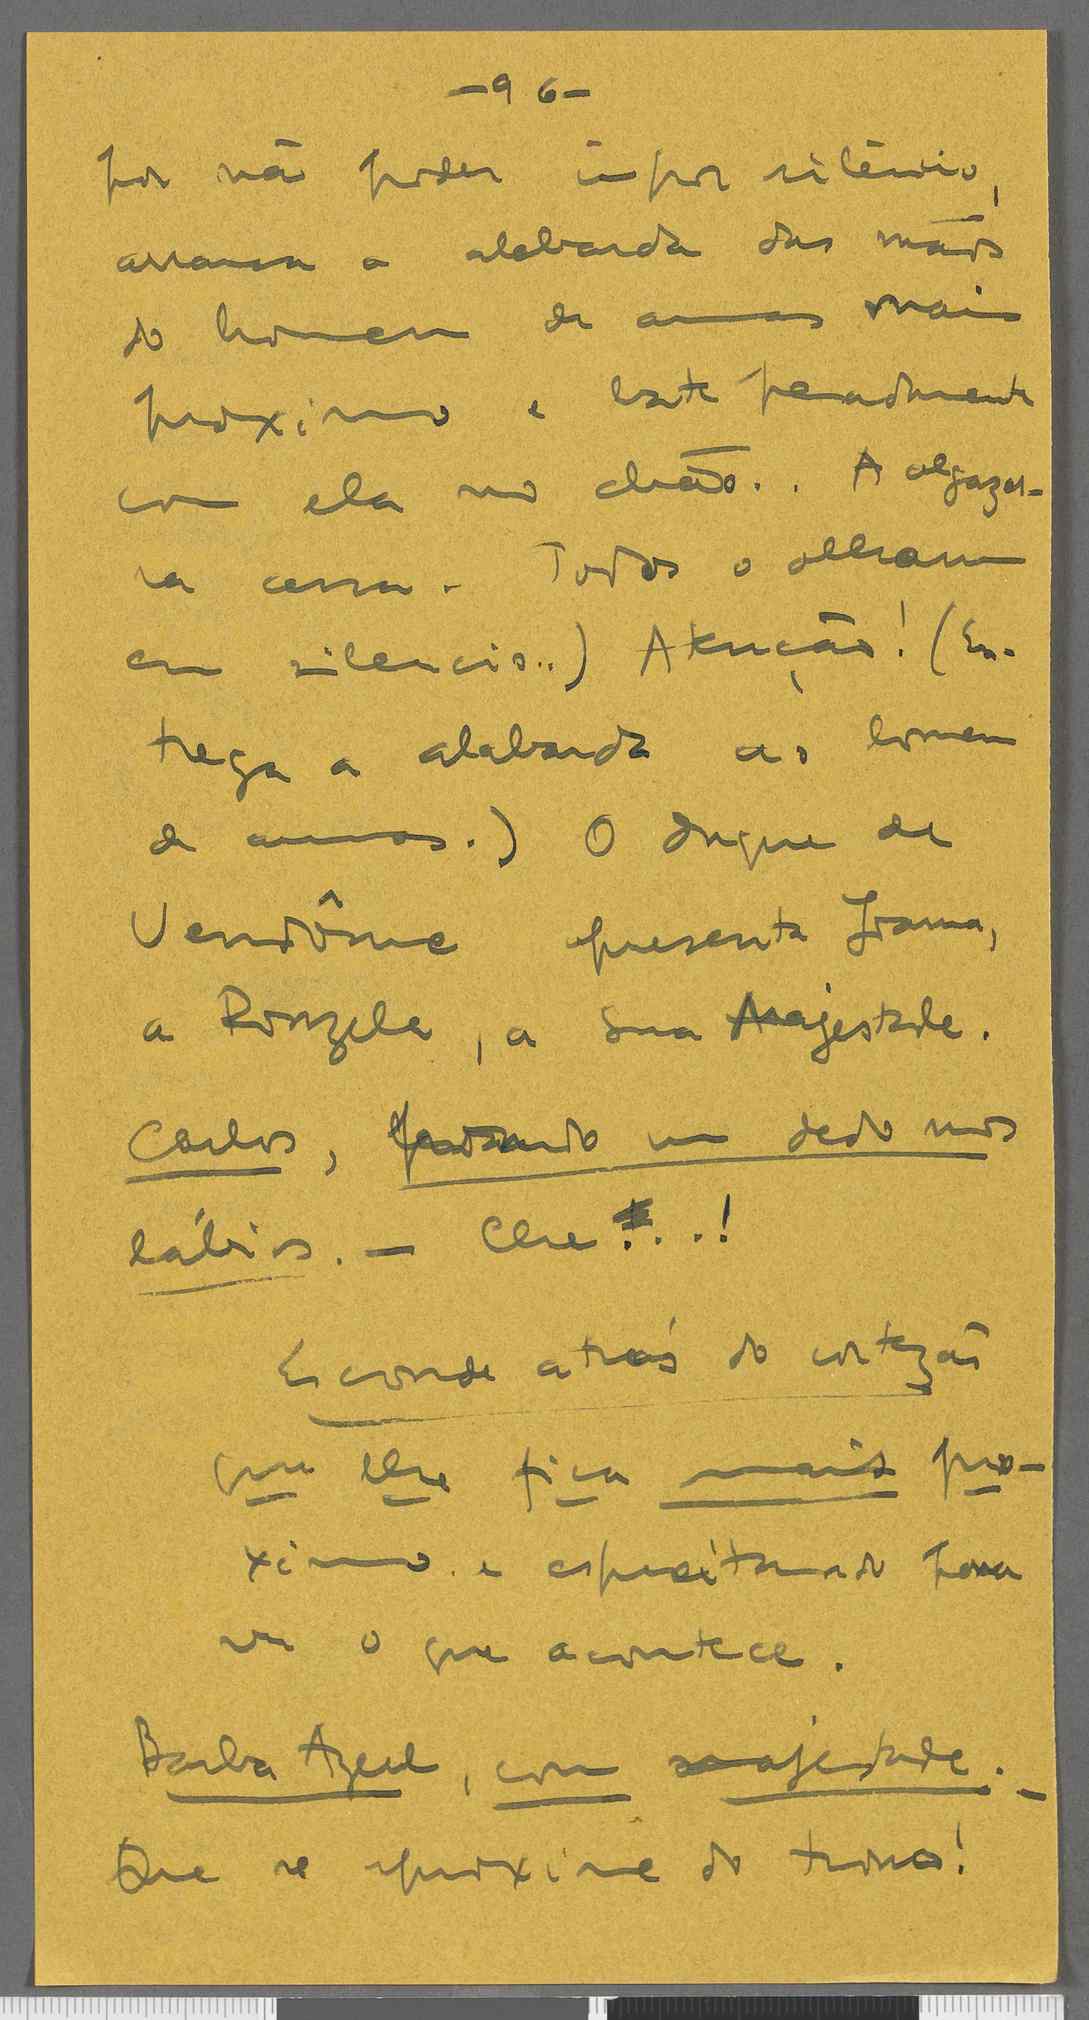 -96-
por não poder impor silêncio,
arranca a alabarda das mãos
do homem de armas mais
proximo e bate pesadamente
com ela no chão.. A algazar-
ra cessa. Todos o olham
em silencio..) Atenção! (En-
trega a alabarda ao homem
de armas.) O duque de
Vendôme apresenta Joana,
a Donzela, a Sua Majestade.
Carlos, pousando um dedo nos
lábios. — Che...!
Esconde atrás do cortezão
que lhe fica mais pro-
ximo e espreitando para
ver o que acontece.
Barba Azul, com majestade. -
Que se aproxime do trono!